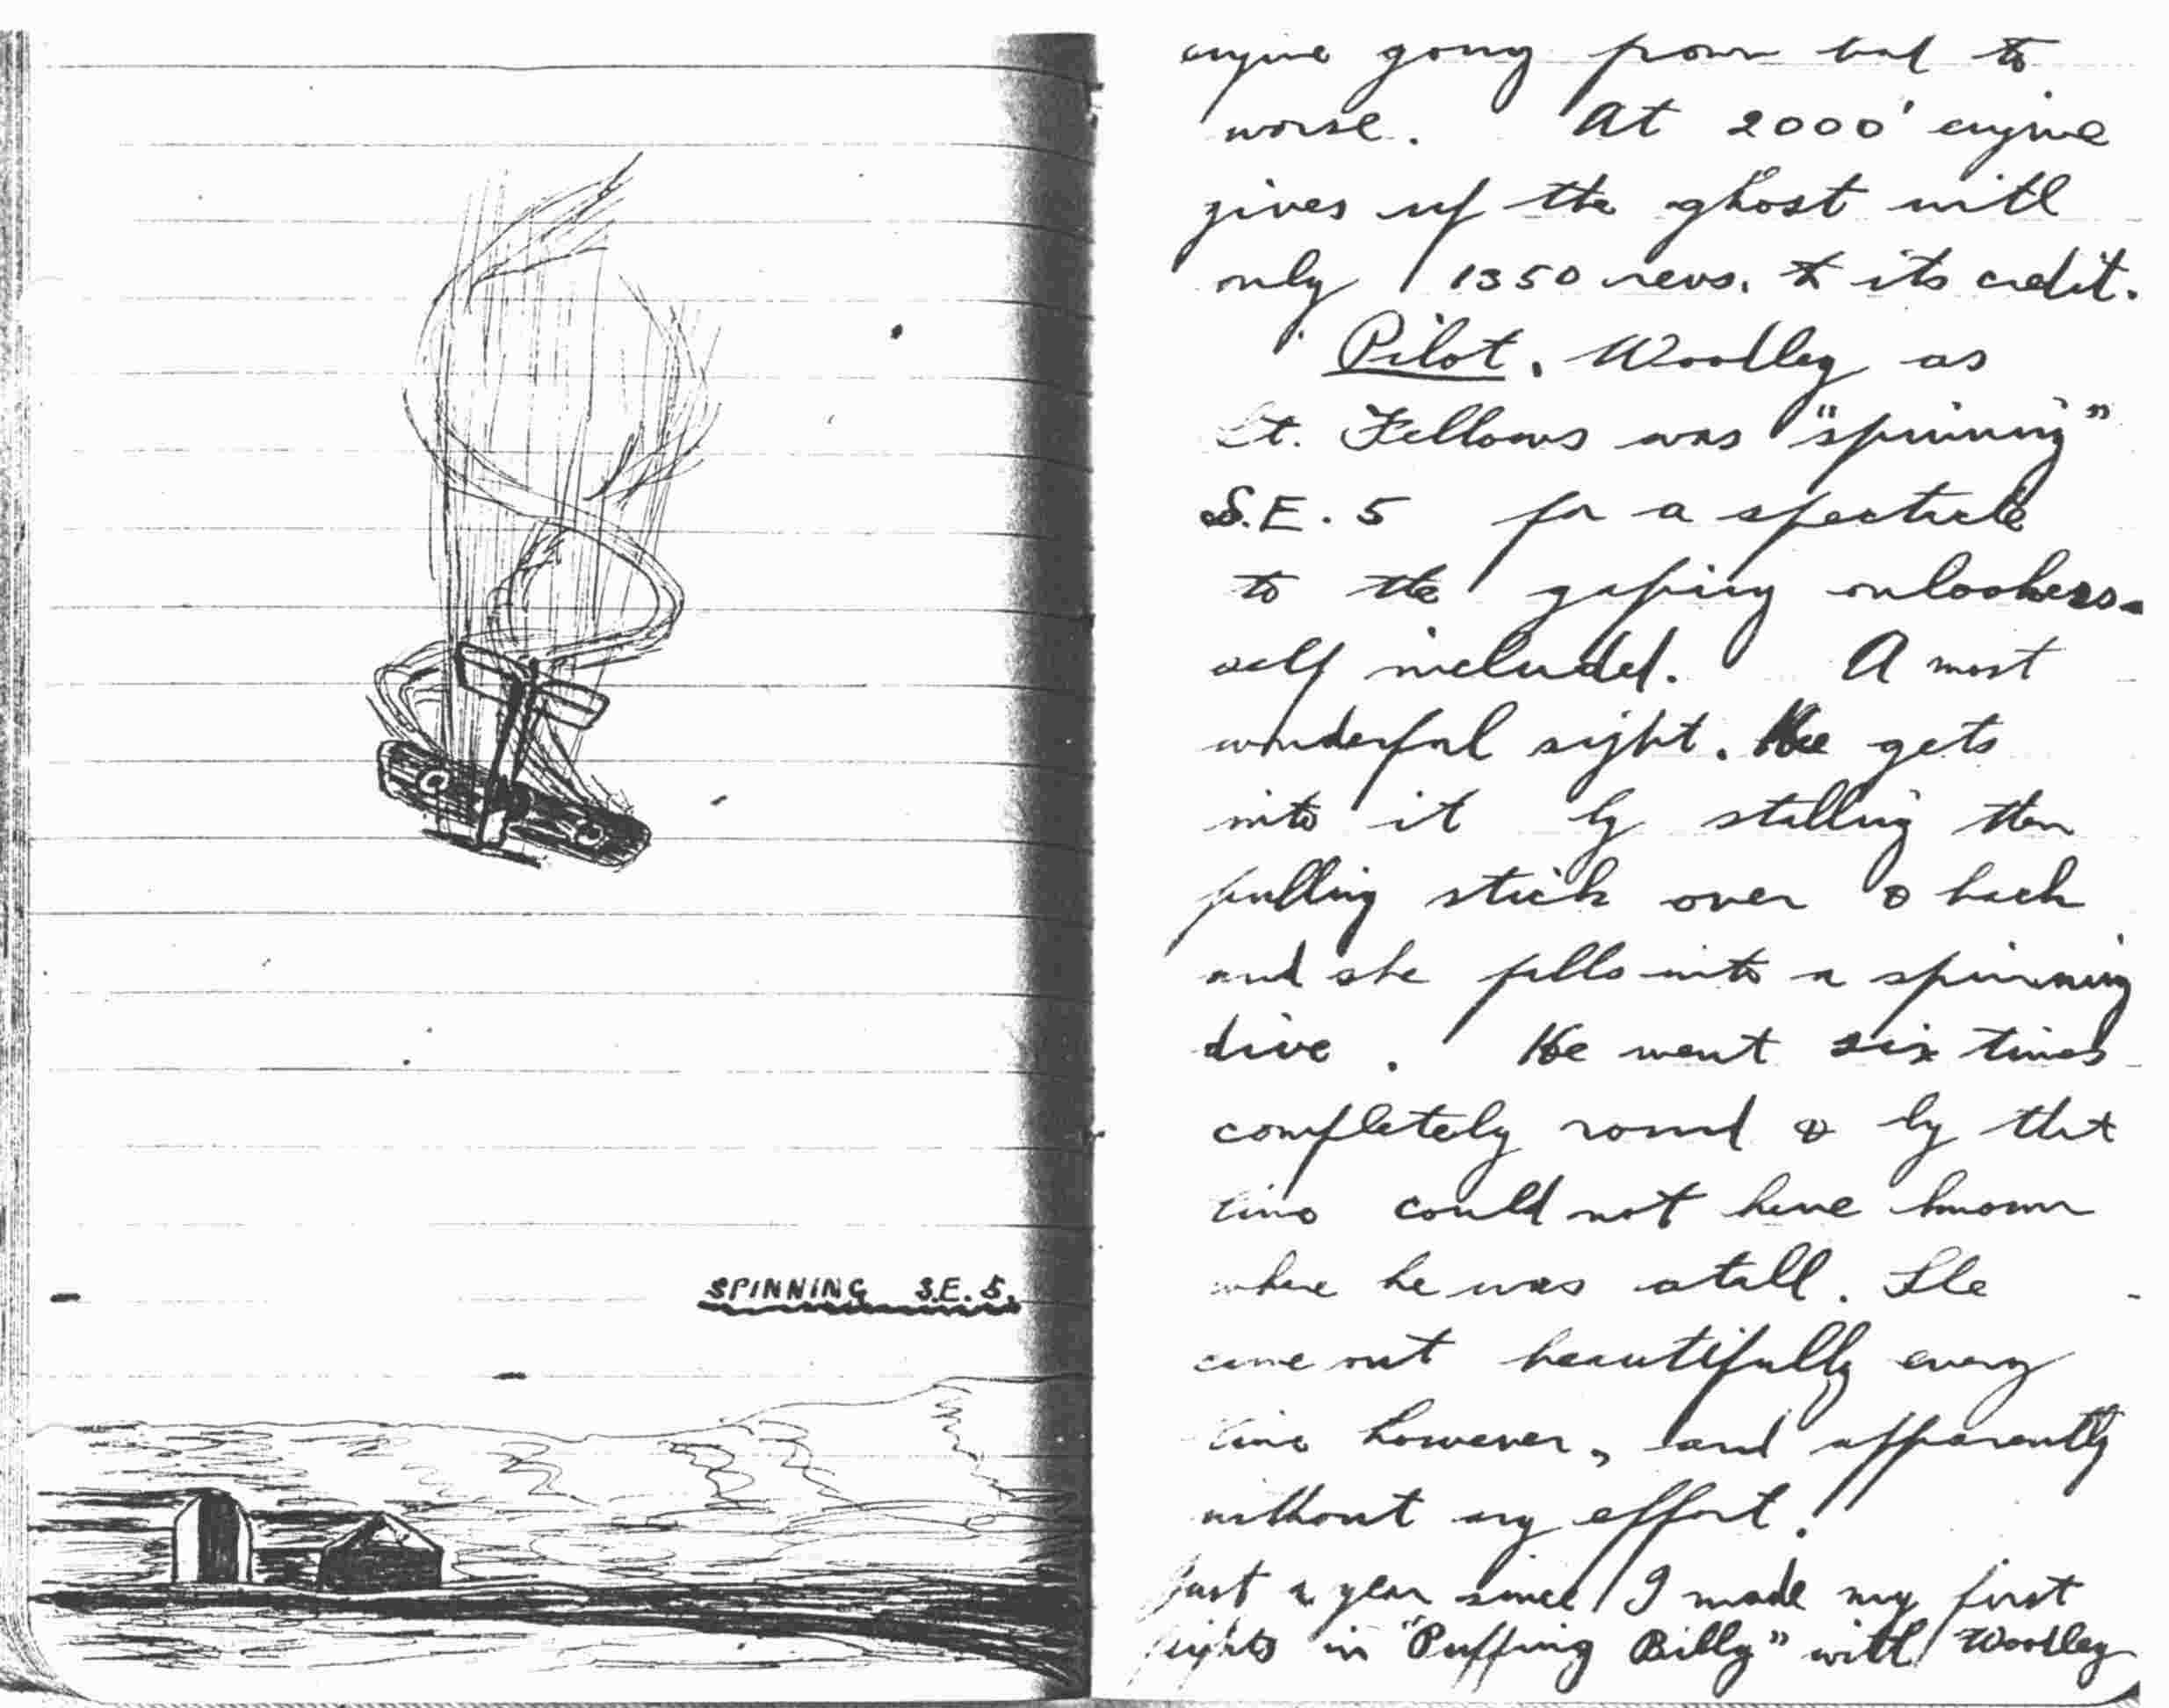 SPINNING S.E. 5.
engine going from bad to
worse. At 2000' engine
gives up the ghost with
only 1350 revs. to its credit.
Pilot. Woolley as
Lt. Fellows was "spinning"
S.E. 5 for a spectacle
to the gaping onlookers -
self included. A most
wonderful sight. He gets
into it by stalling then
pulling stick over & back
and she falls into a spinning
dive. He went six times
completely round & by that
time could not have known
where he was atall. She
came out beautifully every
time however, and apparently
without any effort.
Just a year since I made my first
flights in "Puffing Billy" with Woolley